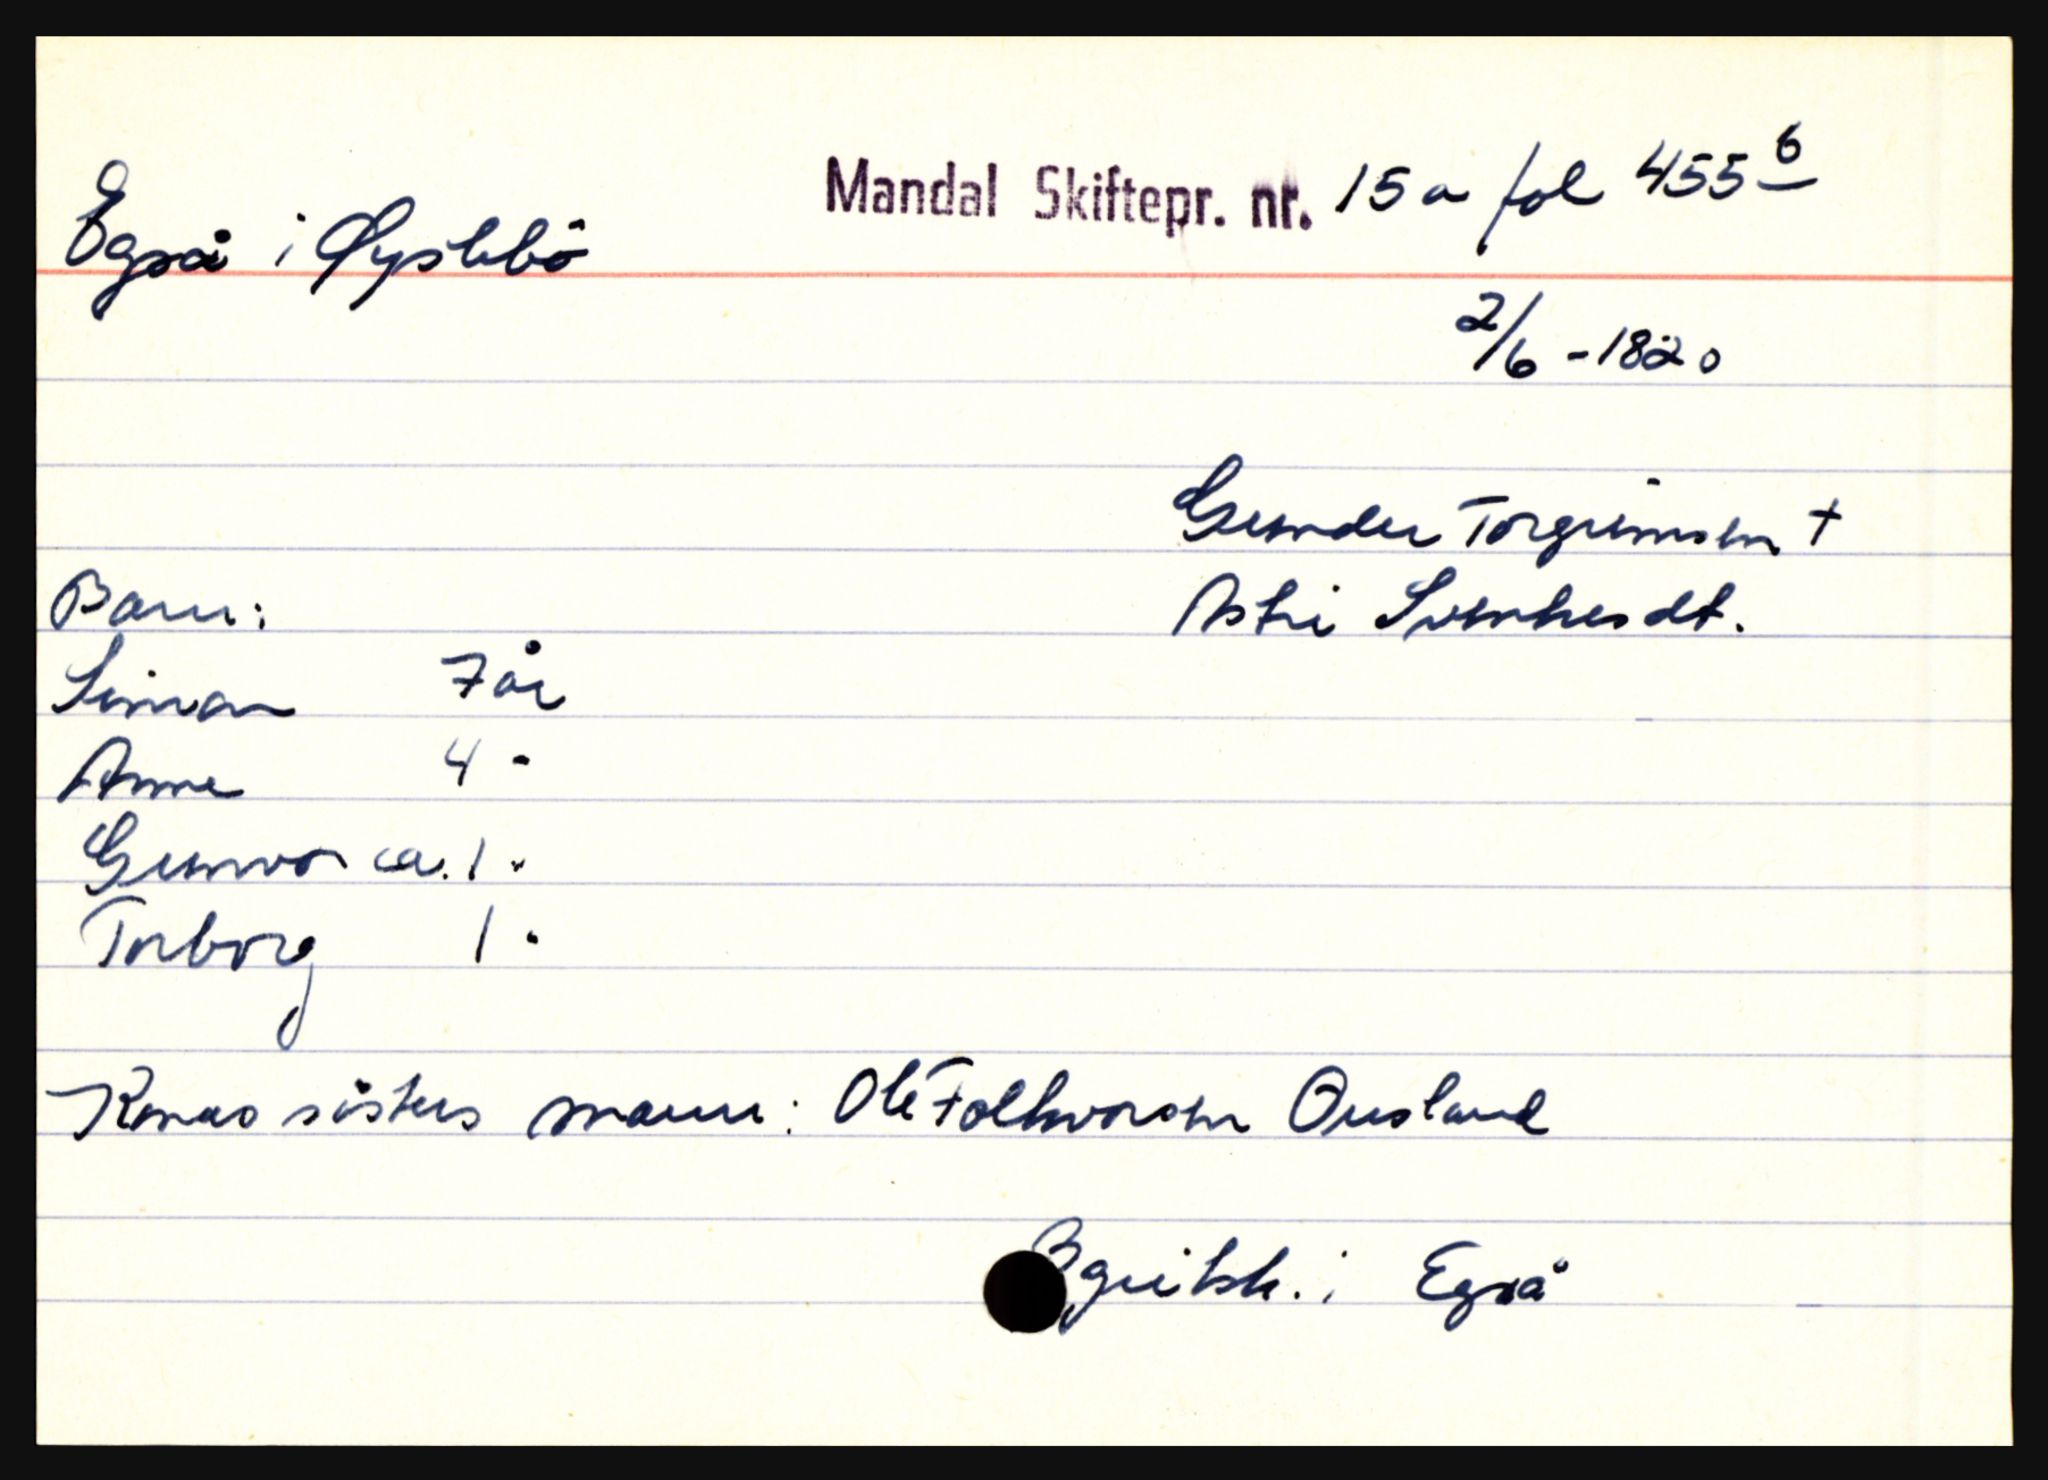 Egså i Øyslebö
Mandal Skiftepr. nr. 15 a fol 455 b
2/6 - 1820
Gunder Torgrimsen †
Barn:
Astri Svenkesdt.
Simon 7 år
Anne 4 "
Gunvor ca. 1 "
Torborg 1 "
Konas sösters mann: Ole Folkvorsen Ousland
Bgritsk. i Egså